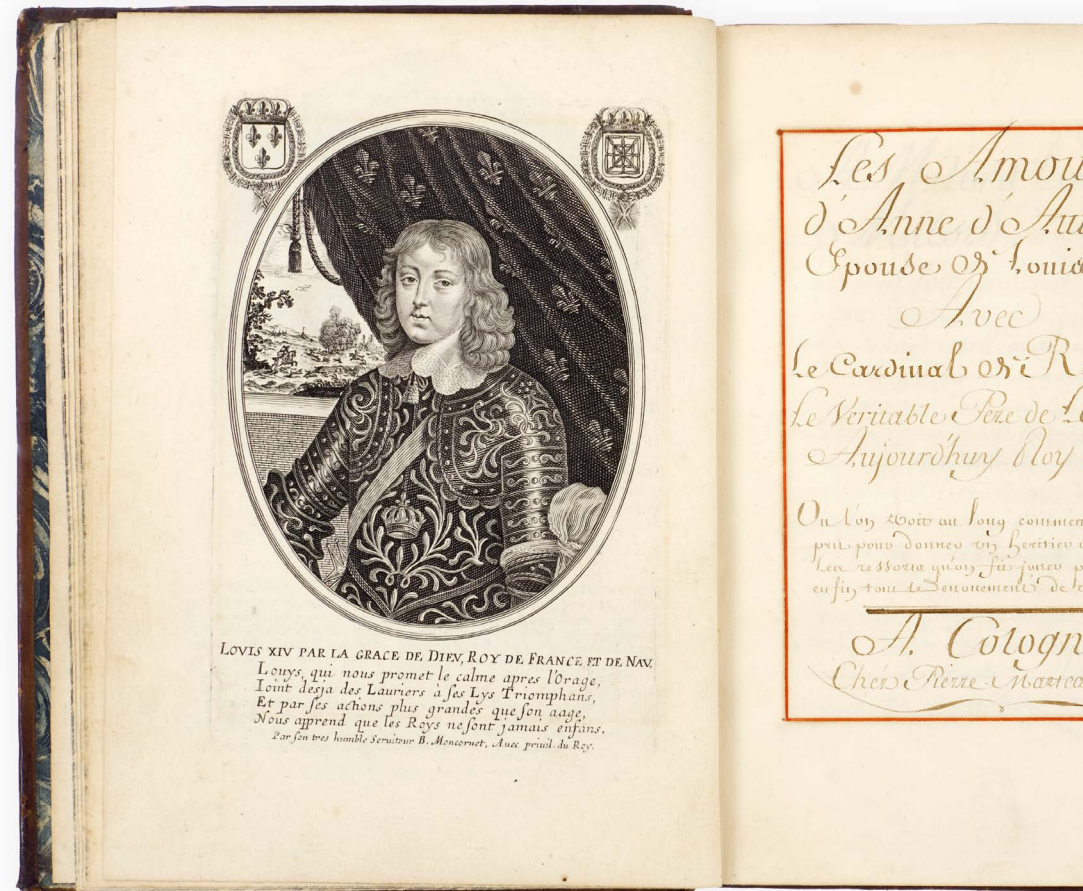 LOVIS XIV PAR LA GRACE DE DIEV, ROY DE FRANCE ET DE NAV.
Louys, qui nous promet le calme apres l'Orage,
Ioint desja des Lauriers à ses Lys Triomphans,
Et par ses actions plus grandes que son aage,
Nous apprend que les Roys ne sont jamais enfans.
Par son tres humble Serviteur B. Moncornet, Avec privil. du Roy.
Les Amou
d'Anne d'Au
Epouse de Louis
Avec
Le Cardinal de R
Le Veritable Pere de
Aujourd'huy Roy
Ou l'on Voit au long commen
prit pour donner un heritier
Les ressorts qu'on fit jouer p
enfin tout le Denouement de
A. Cologn
Chéz Pierre Martea